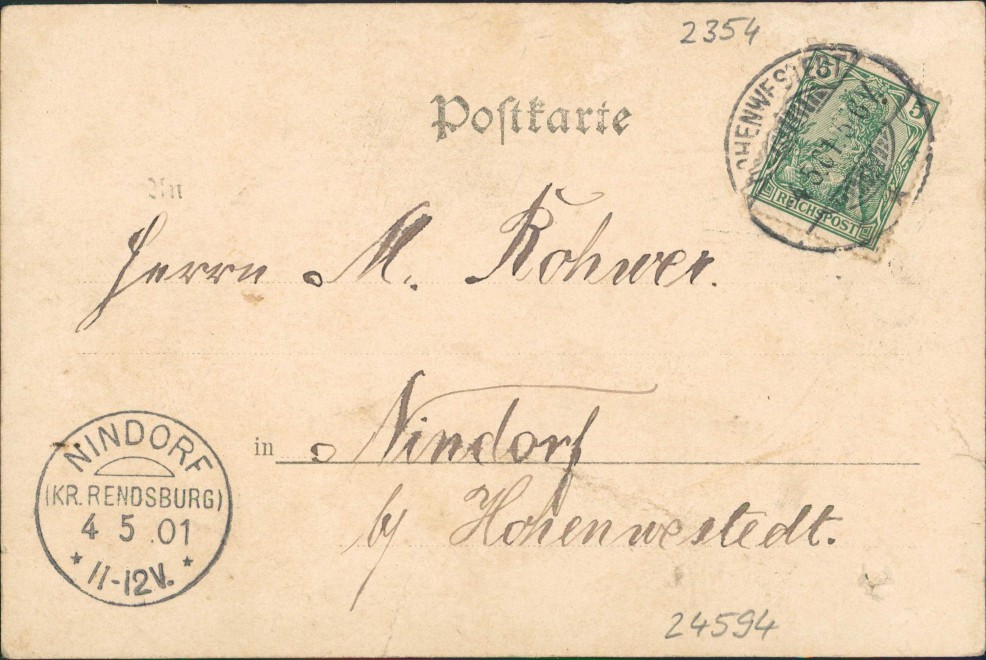 2354
Postkarte
HOHENWESTEDT
5
5
REICHSPOST
An
Herrn M. Rohwer.
in Nindorf
b/ Hohenwestedt.
NINDORF
(KR. RENDSBURG)
4 5 .01
* 11-12V. *
24594